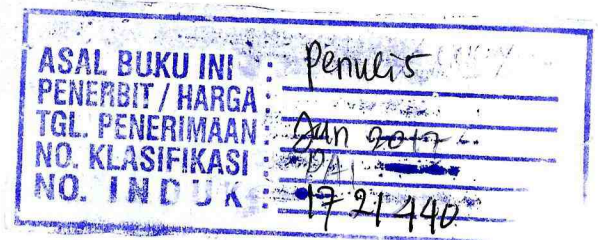 ASAL BUKU INI : Penulis
PENERBIT / HARGA :
TGL. PENERIMAAN : Jun 2017
NO. KLASIFIKASI : PAI
NO. INDUK : 1721440